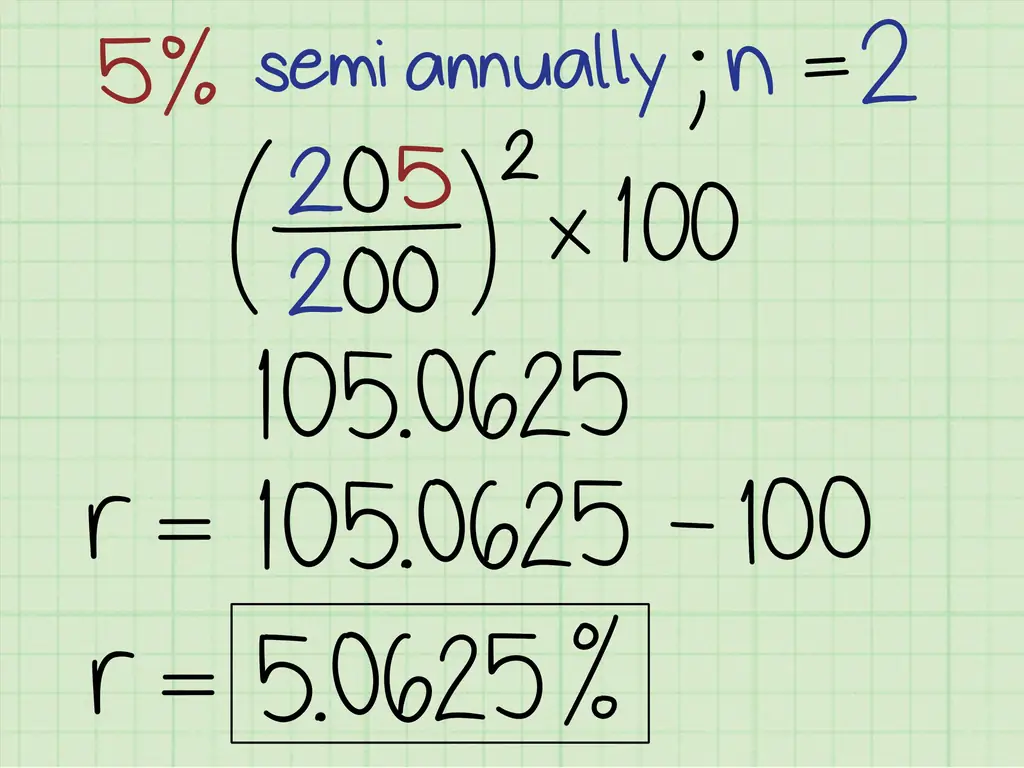 5% semi annually ; n = 2
(205/200)² × 100
105.0625
r = 105.0625 - 100
r = 5.0625%